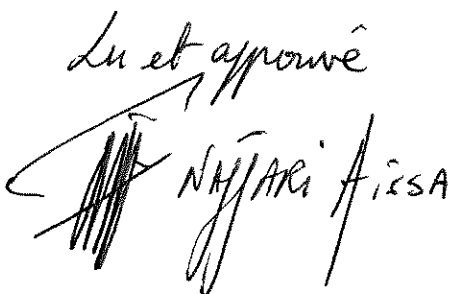 Lu et approuvé
NAJJARi AissA